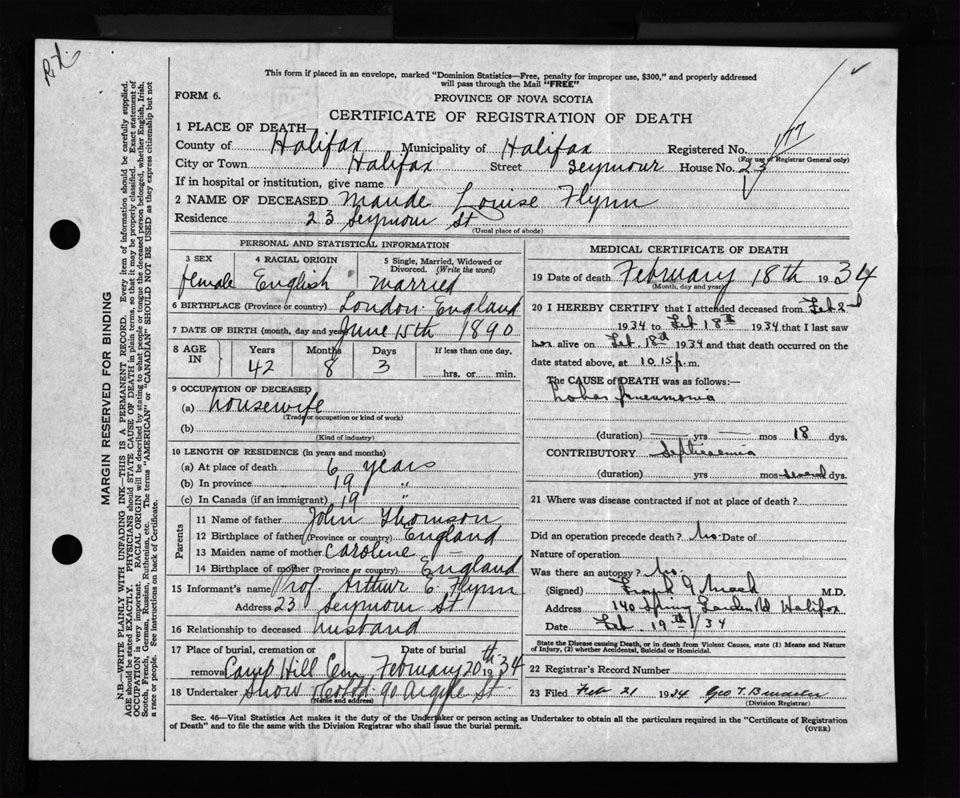 Rx.
This form if placed in an envelope, marked "Dominion Statistics—Free, penalty for improper use, $300," and properly addressed
will pass through the Mail "FREE"
FORM 6.
PROVINCE OF NOVA SCOTIA
CERTIFICATE OF REGISTRATION OF DEATH
1 PLACE OF DEATH
County of Halifax Municipality of Halifax Registered No. 177
(For use of Registrar General only)
City or Town Halifax Street Seymour House No. 23
If in hospital or institution, give name
2 NAME OF DECEASED Maude Louise Flynn
Residence 23 Seymour St
(Usual place of abode)
PERSONAL AND STATISTICAL INFORMATION
3 SEX 4 RACIAL ORIGIN 5 Single, Married, Widowed or
Divorced. (Write the word)
female English Married
6 BIRTHPLACE (Province or country) London England
7 DATE OF BIRTH (month, day and year) June 15th 1890
8 AGE IN Years Months Days If less than one day,
42 8 3 hrs. or min.
9 OCCUPATION OF DECEASED
(a) housewife
(Trade or occupation or kind of work)
(b)
(Kind of industry)
10 LENGTH OF RESIDENCE (in years and months)
(a) At place of death 6 years
(b) In province 19 "
(c) In Canada (if an immigrant) 19 "
Parents
11 Name of father John Thomson
12 Birthplace of father (Province or country) England
13 Maiden name of mother Caroline —
14 Birthplace of mother (Province or country) England
15 Informant's name Prof Arthur E. Flynn
Address 23 Seymour St
16 Relationship to deceased husband
17 Place of burial, cremation or Date of burial
removal Camp Hill Cem. February 20th 1934
18 Undertaker Snow & Co Ltd 90 Argyle St.
(Name and address)
MEDICAL CERTIFICATE OF DEATH
19 Date of death February 18th 1934
(Month, day and year)
20 I HEREBY CERTIFY that I attended deceased from Feb 2nd
1934 to Feb 18th 1934 that I last saw
her alive on Feb. 18th 1934 and that death occurred on the
date stated above, at 10.15 p.m.
The CAUSE of DEATH was as follows:—
Lobar pneumonia
(duration) yrs mos 18 dys.
CONTRIBUTORY Septicaemia
(duration) yrs mos several dys
21 Where was disease contracted if not at place of death?
Did an operation precede death? No. Date of
Nature of operation
Was there an autopsy? No.
(Signed) M.D.
Address 140 Spring Garden Rd Halifax
Date Feb 19th/34
State the Disease causing Death, or in death from Violent Causes, state (1) Means and Nature
of Injury, (2) whether Accidental, Suicidal or Homicidal.
22 Registrar's Record Number
23 Filed Feb 21 1934 Geo T.
(Division Registrar)
Sec. 46—Vital Statistics Act makes it the duty of the Undertaker or person acting as Undertaker to obtain all the particulars required in the "Certificate of Registration
of Death" and to file the same with the Division Registrar who shall issue the burial permit. (OVER)
MARGIN RESERVED FOR BINDING
N.B.—WRITE PLAINLY WITH UNFADING INK—THIS IS A PERMANENT RECORD. Every item of information should be carefully supplied.
AGE should be stated EXACTLY. PHYSICIANS should STATE CAUSE OF DEATH in plain terms, so that it may be properly classified. Exact statement of
OCCUPATION is very important. RACIAL ORIGIN will be described by stating to what people or tongue the deceased person belonged, whether English, Irish,
Scotch, French, German, Russian, Ruthenian, etc. The terms "AMERICAN" or "CANADIAN" SHOULD NOT BE USED as they express citizenship but not
a race or people. See instructions on back of Certificate.